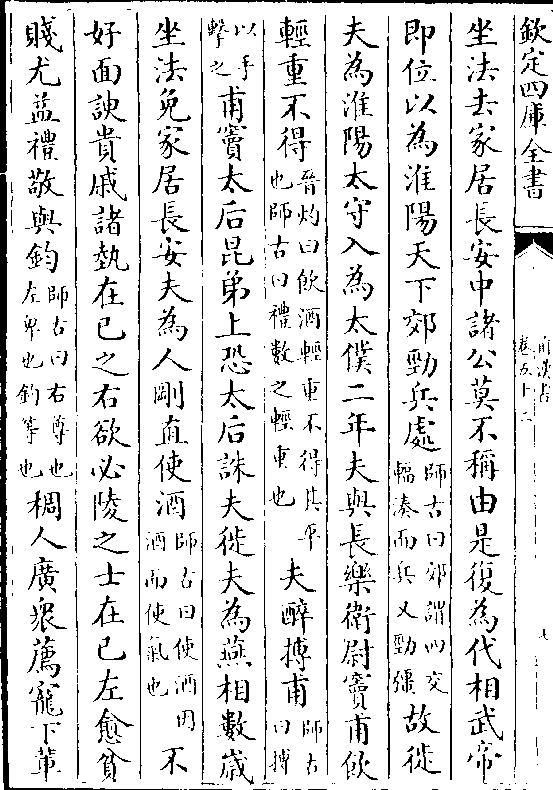 欽定四庫全書
前漢書
卷五十二
七
坐法去家居長安中諸公莫不稱由是復為代相武帝
即位以為淮陽天下郊勁兵處師古曰郊謂四交輻湊而兵又勁彊故徙
夫為淮陽太守入為太僕二年夫與長樂衛尉竇甫飲
輕重不得晉灼曰飲酒輕重不得其平也師古曰禮數之輕重也夫醉搏甫師古曰搏
以手擊之甫竇太后昆弟上恐太后誅夫徙夫為燕相數歲
坐法免家居長安夫為人剛直使酒師古曰使酒因酒而使氣也不
好面諛貴戚諸埶在已之右欲必陵之士在已左愈貧
賤尤益禮敬與鈞師古曰右尊也左卑也鈞等也稠人廣衆薦寵下軰